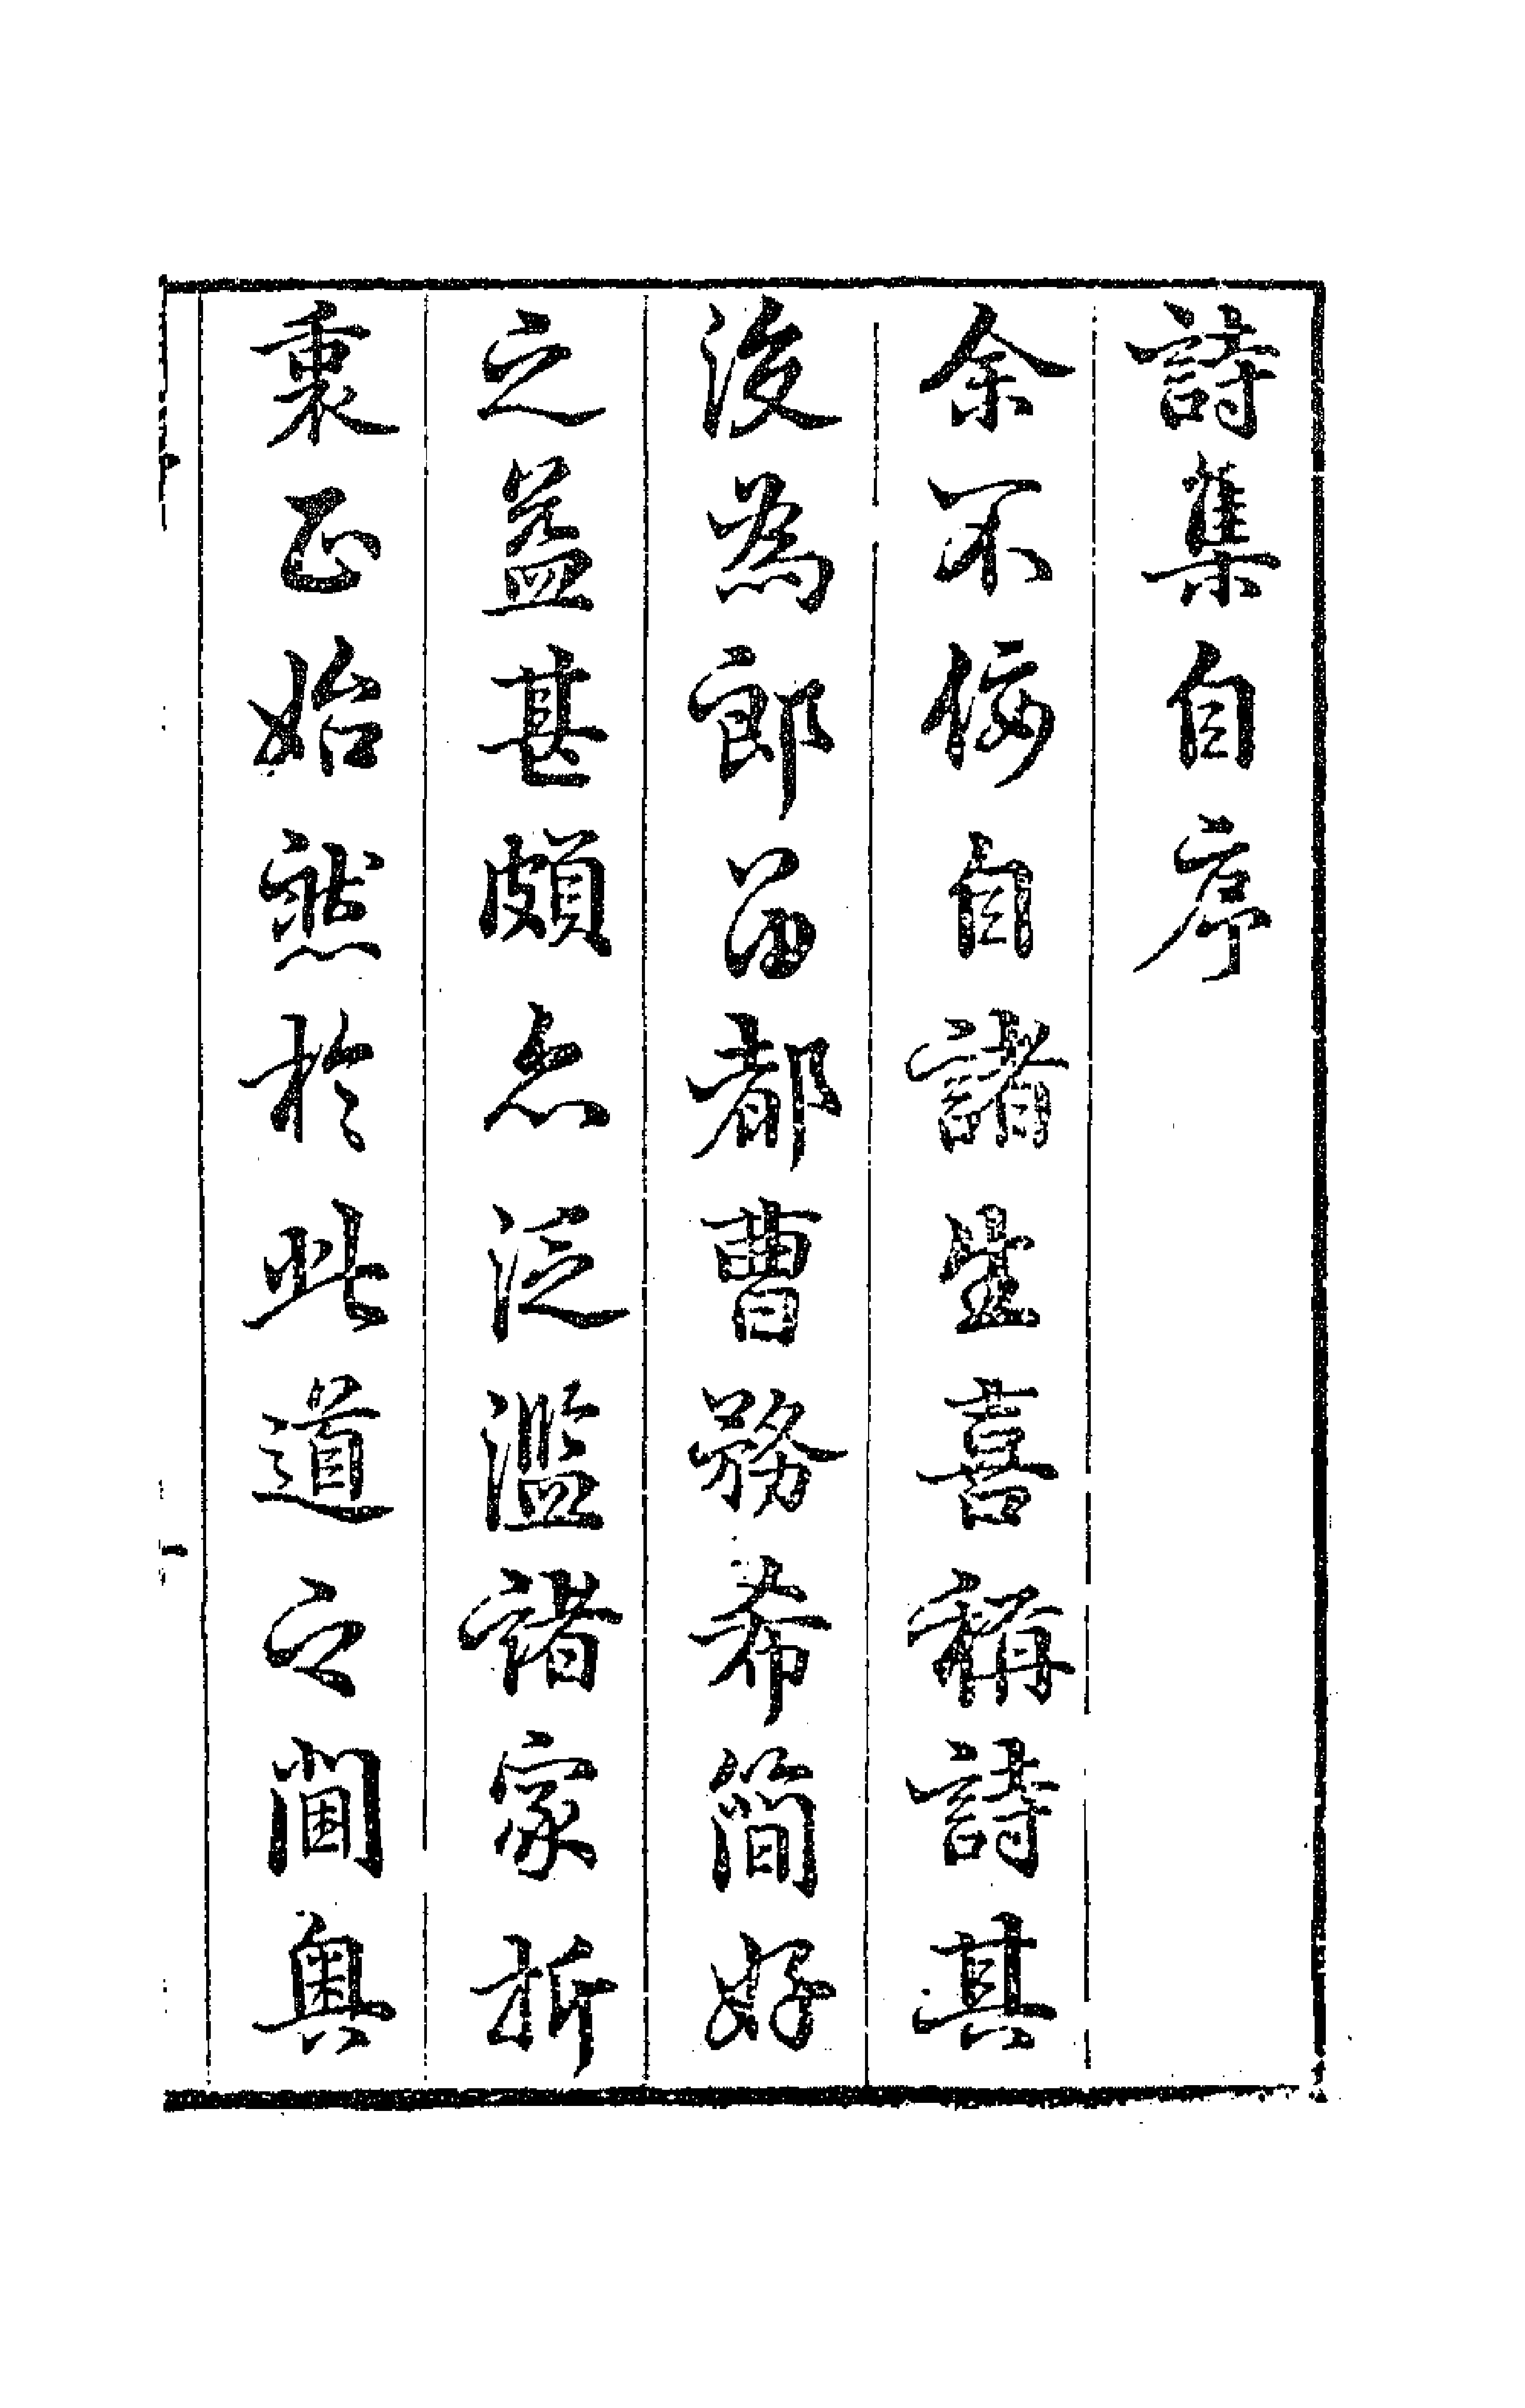 詩集自序
余不佞自諸生喜稱詩其
後為郎留都曹務希簡好
之益甚頗亦泛濫諸家折
衷正始然於此道之閫奧